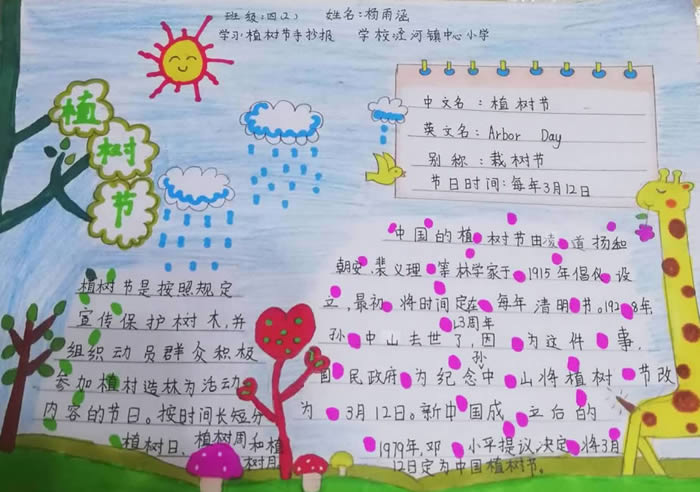 班级:四(2) 姓名:杨雨涵
学习植树节手抄报 学校:泾河镇中心小学
植
树
节
中文名:植树节
英文名:Arbor Day
别称:栽树节
节日时间:每年3月12日
植树节是按照规定
宣传保护树木,并
组织动员群众积极
参加植村造林为活动
内容的节日。按时间长短分
植树日、植树周和植
树月
中国的植树节由凌道扬和
朝安、裴义理等林学家于1915年倡仪设
立,最初将时间定在每年清明节。1928年,
孙中山去世了,因为这件事,
3周年
国民政府为纪念孙中山将植树节改
为3月12日。新中国成立后的
1979年,邓小平提议决定将3月
12日定为中国植树节。